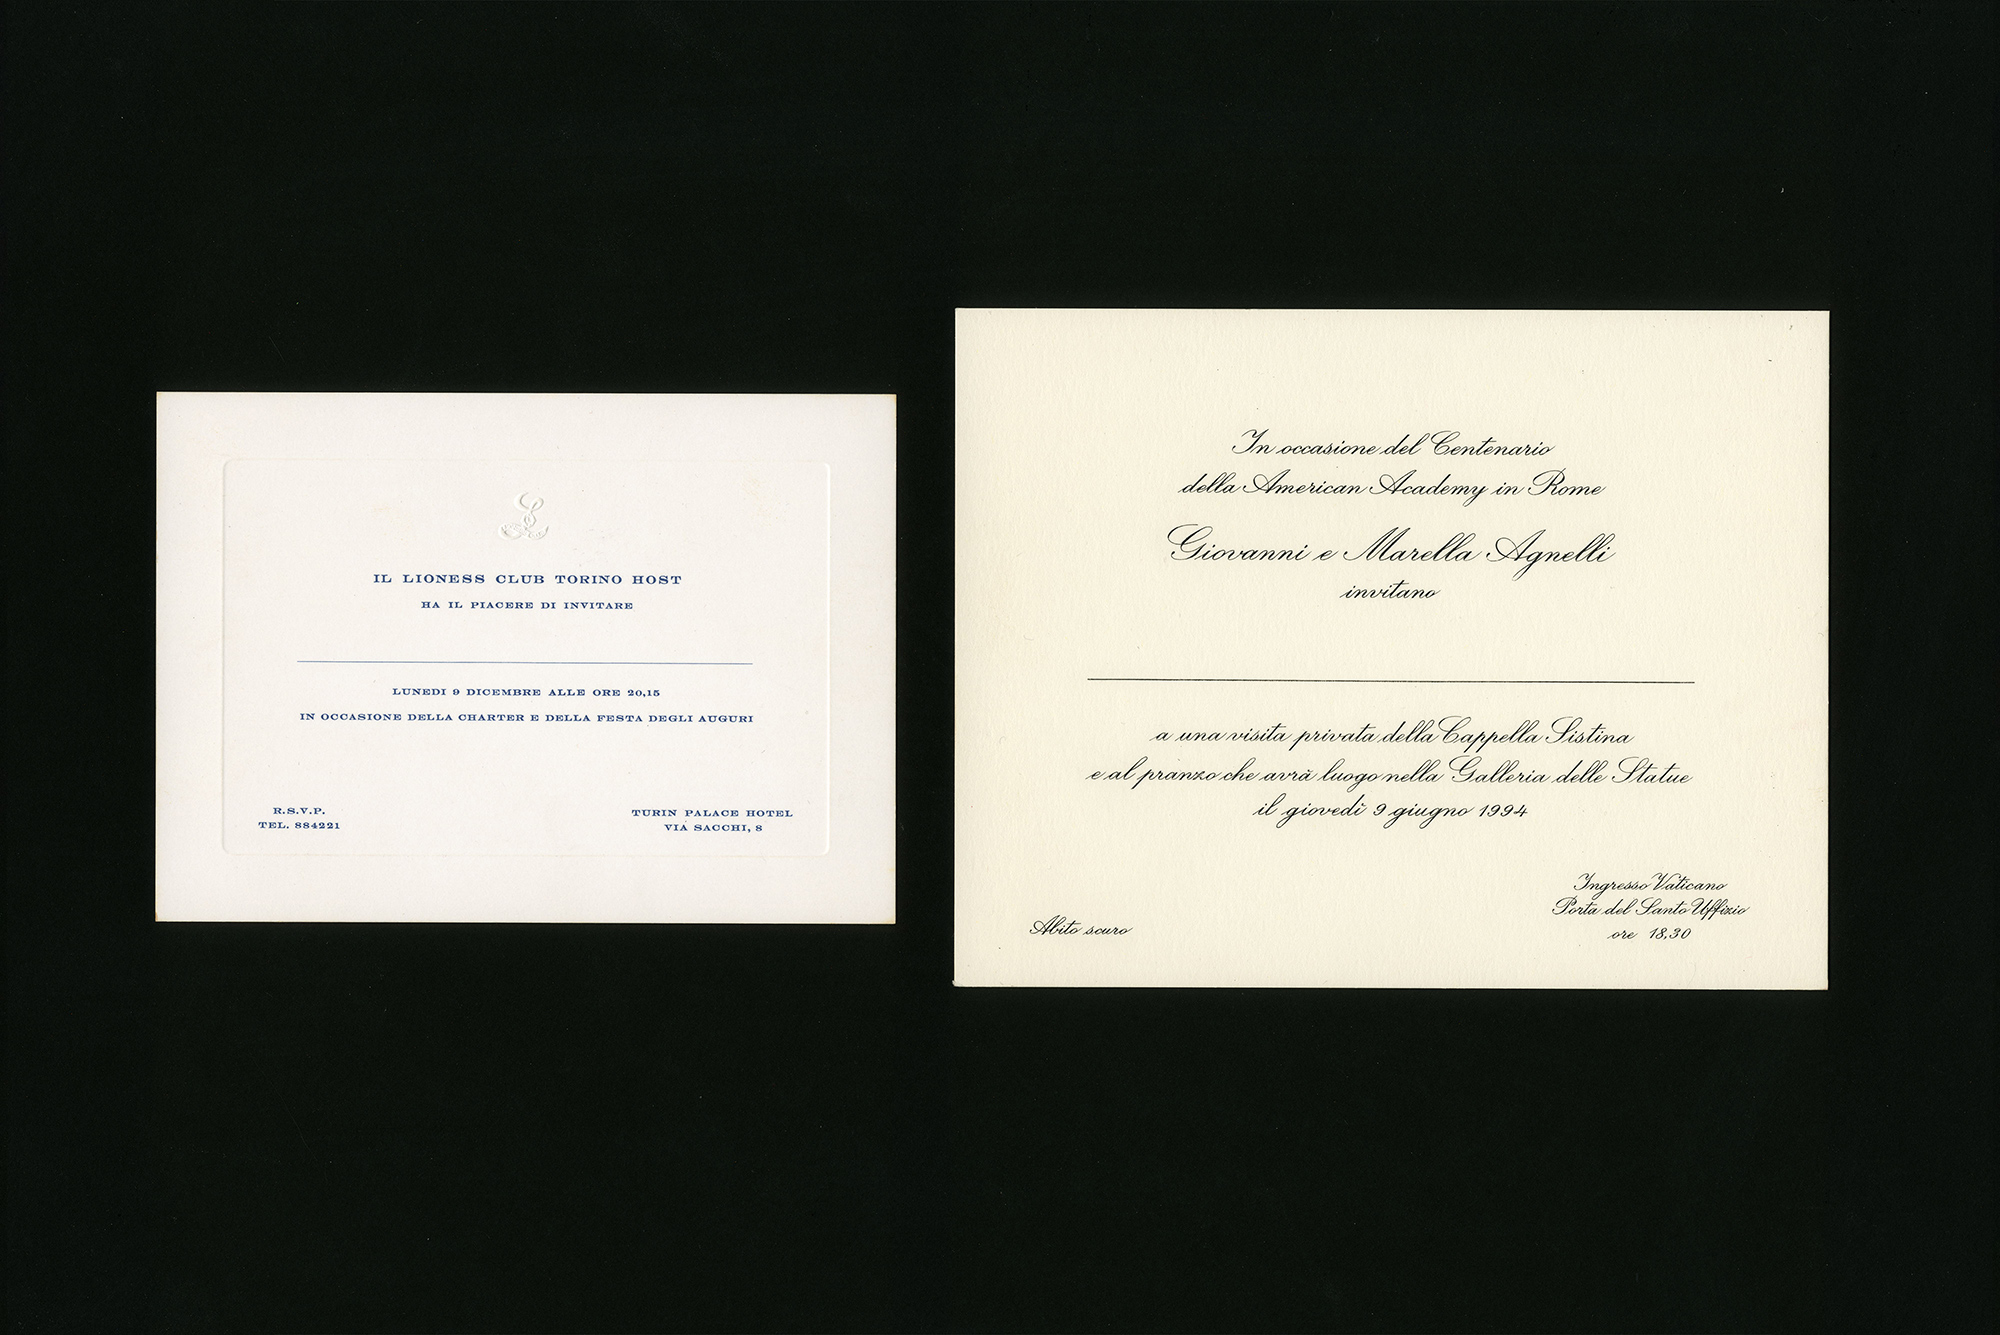 IL LIONESS CLUB TORINO HOST
HA IL PIACERE DI INVITARE
LUNEDI 9 DICEMBRE ALLE ORE 20,15
IN OCCASIONE DELLA CHARTER E DELLA FESTA DEGLI AUGURI
R.S.V.P.
TEL. 884221
TURIN PALACE HOTEL
VIA SACCHI, 8
In occasione del Centenario
della American Academy in Rome
Giovanni e Marella Agnelli
invitano
a una visita privata della Cappella Sistina
e al pranzo che avrà luogo nella Galleria delle Statue
il giovedì 9 giugno 1994
Abito scuro
Ingresso Vaticano
Porta del Santo Uffizio
ore 18,30